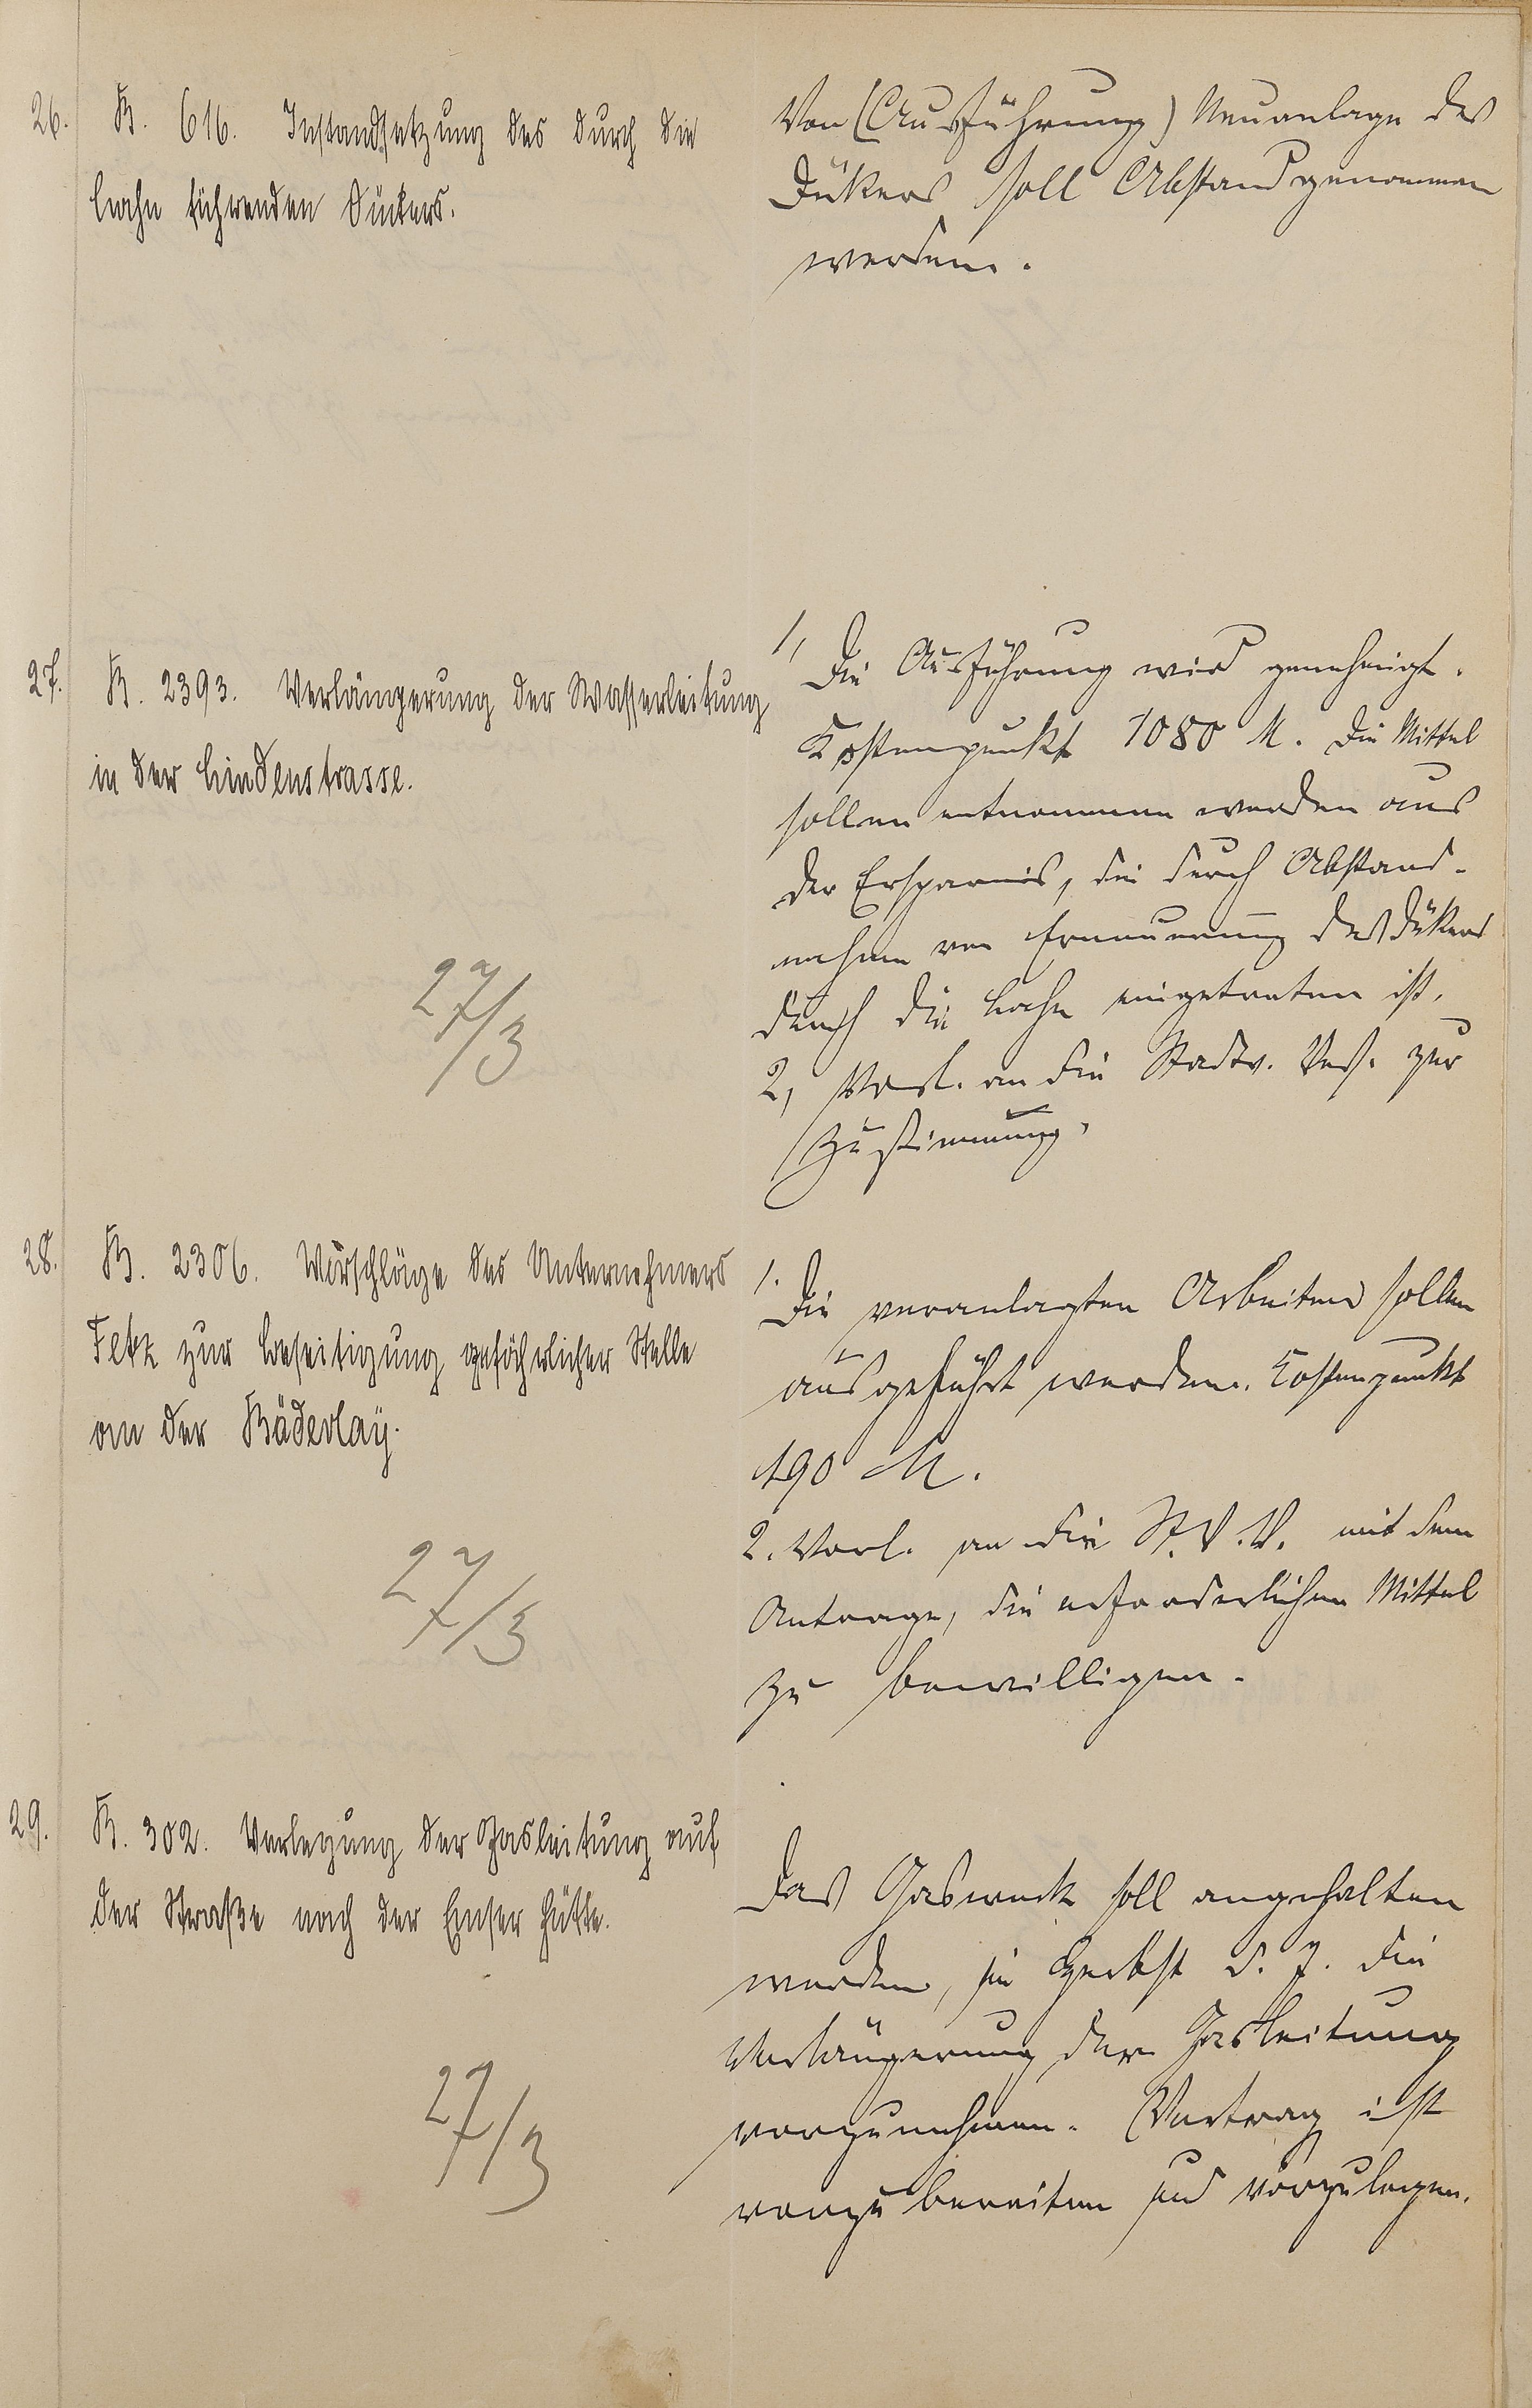 26. B. 616. Instandsetzung des durch die
Lahn führenden Dükers.
Von (Ausführung) Neuanlage des
Dükers soll Abstand genommen
werden.
27. B. 2393. Verlängerung der Wasserleitung
in der Lindenstrasse.
27/3
1, Die Ausführung wird genehmigt.
Kostenpunkt 1080 M. Die Mittel
sollen entnommen werden aus
der Ersparnis, die durch Abstand-
nahme von Erneuerung des Dükers
durch die Lahn eingetreten ist.
2, Vorl. an die Stadtv. Vers. zur
Zustimmung.
28. B. 2306. Vorschläge des Unternehmers
zur Beseitigung gefährlicher Stelle
an der Bäderlay.
27/3
1. Die veranlagten Arbeiten sollen
ausgeführt werden. Kostenpunkt
190 M.
2. Vorl. an die St. V. V. mit dem
Antrage, die erforderlichen Mittel
zu bewilligen.
29. B. 302. Verlegung der Gasleitung auf
der Straße nach der Emser Hütte.
27/3
Das Gaswerk soll angehalten
werden, im Herbst d. J. die
Verlängerung der Gasleitung
vorzunehmen. Vertrag ist
vorzubereiten und vorzulegen.